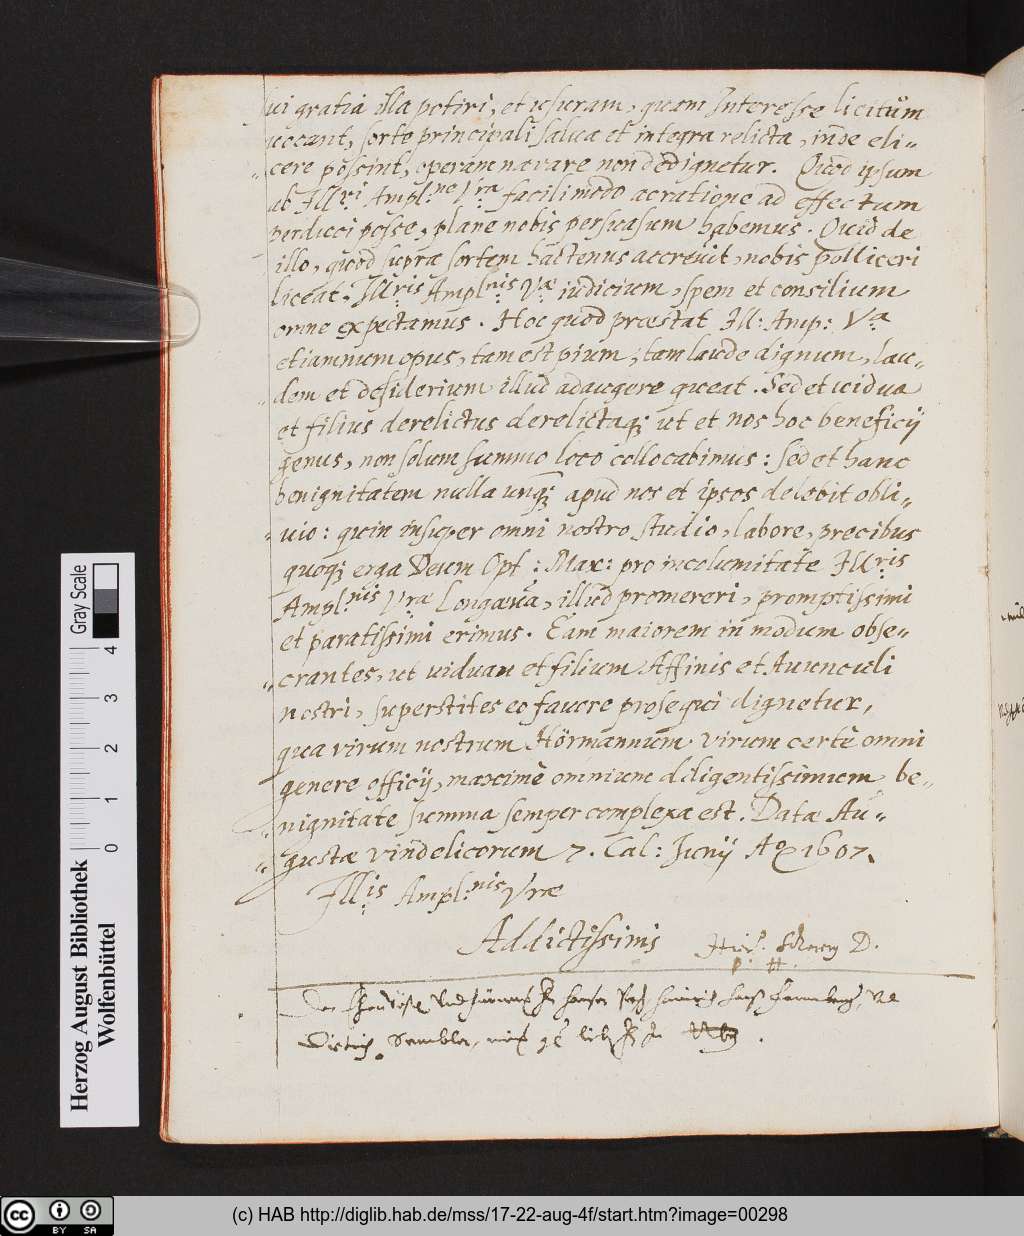 sui gratia illa potiri, et usuram, quam Interesse licitùm
vocant, sorte principali salva et integra relicta, inde eli-
cere possint, operam navare non dedignetur. Quod ipsum
ab Ill:ri Ampl:ne Vra facili modo ac ratione ad effectum
perduci posse, plane nobis persuasum habemus. Quid de
illo, quod supra sortem hactenus accrevit, nobis polliceri
liceat. Ill:ris Ampl:nis Væ iudicium, spem et consilium
omne expectamus. Hoc quod præstat Ill: Amp: Va
etiamnum opus, tam est pium, tam laude dignum, lau-
dem et desiderium illud adaugere queat. Sed et vidua
et filius derelictus derelictaq; ut et nos hoc beneficij
genus, non solum summo loco collocabimus: sed et hanc
benignitatem nulla unq; apud nos et ipsos delebit obli-
vio: quin insuper omni nostro studio, labore, precibus
quoq; erga Deum Opt: Max: pro incolumitate Ill:ris
Ampl:nis Vræ Longæva, illud promereri, promptissimi
et paratissimi erimus. Eam maiorem in modum obse-
crantes, ut viduam et filium Affinis et Avunculi
nostri, superstites eo favore prosequi dignetur,
qua virum nostrum Hörmannum virum certè omni
genere officij, maximè omnium diligentissimum be-
nignitate summa semper complexa est. Datæ Au-
gustæ vindelicorum 7. Cal: Junij Ao 1607.
Ill:is Ampl:nis Vræ
Addictissimis D.
Gray Scale
4 3 2 1 0
Herzog August Bibliothek
Wolfenbüttel
cc BY SA
(c) HAB http://diglib.hab.de/mss/17-22-aug-4f/start.htm?image=00298